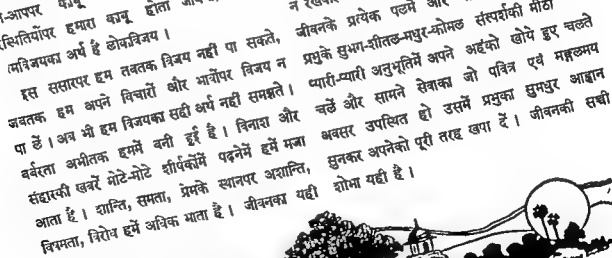 -आपपर काबू होता
परिस्थितियोंपर हमारा काबू
त्मविजयका अर्थ है लोकविजय ।
इस संसारपर हम तबतक विजय नहीं पा सकते,
जबतक हम अपने विचारों और भावोंपर विजय न
पा लें । अब भी हम विजयका सही अर्थ नहीं समझते ।
बर्बरता अभीतक हममें बनी हुई है । विनाश और
संहारकी खबरें मोटे-मोटे शीर्षकोंमें पढ़नेमें हमें मजा
आता है । शान्ति, समता, प्रेमके स्थानपर अशान्ति,
विषमता, विरोध हमें अधिक भाता है । जीवनका यही
जीवनके प्रत्येक पलमें और
प्रभुके सुभग-शीतल-मधुर-कोमल संस्पर्शकी मीठी
प्यारी-प्यारी अनुभूतिमें अपने अहंको खोये हुए चलते
चलें और सामने सेवाका जो पवित्र एवं मङ्गलमय
अवसर उपस्थित हो उसमें प्रभुका सुमधुर आह्वान
सुनकर अपनेको पूरी तरह खपा दें । जीवनकी सच्ची
शोभा यही है ।